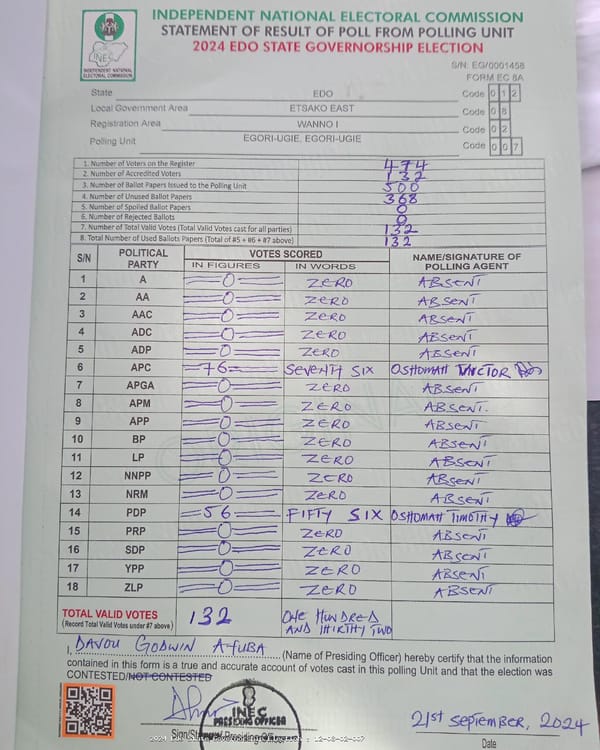 INDEPENDENT NATIONAL ELECTORAL COMMISSION
STATEMENT OF RESULT OF POLL FROM POLLING UNIT
2024 EDO STATE GOVERNORSHIP ELECTION
INEC
INDEPENDENT NATIONAL
ELECTORAL COMMISSION
S/N: EG/0001458
FORM EC 8A
State EDO Code 0 1 2
Local Government Area ETSAKO EAST Code 0 8
Registration Area WANNO I Code 0 2
Polling Unit EGORI-UGIE, EGORI-UGIE Code 0 0 7
1. Number of Voters on the Register 474
2. Number of Accredited Voters 132
3. Number of Ballot Papers Issued to the Polling Unit 500
4. Number of Unused Ballot Papers 368
5. Number of Spoiled Ballot Papers 0
6. Number of Rejected Ballots 0
7. Number of Total Valid Votes (Total Valid Votes cast for all parties) 132
8. Total Number of Used Ballots Papers (Total of #5 + #6 + #7 above) 132
S/N POLITICAL PARTY VOTES SCORED NAME/SIGNATURE OF POLLING AGENT
IN FIGURES IN WORDS
1 A 0 ZERO ABSENT
2 AA 0 ZERO ABSENT
3 AAC 0 ZERO ABSENT
4 ADC 0 ZERO ABSENT
5 ADP 0 ZERO ABSENT
6 APC 76 SEVENTH SIX OSHOMAH VICTOR
7 APGA 0 ZERO ABSENT
8 APM 0 ZERO ABSENT.
9 APP 0 ZERO ABSENT
10 BP 0 ZERO ABSENT
11 LP 0 ZERO ABSENT
12 NNPP 0 ZERO ABSENT
13 NRM 0 ZERO ABSENT
14 PDP 56 FIFTY SIX OSHOMAH TIMOTHY
15 PRP 0 ZERO ABSENT
16 SDP 0 ZERO ABSENT
17 YPP 0 ZERO ABSENT
18 ZLP 0 ZERO ABSENT
TOTAL VALID VOTES 132 ONE HUNDRED
(Record Total Valid Votes under #7 above) AND THIRTHY TWO
I, DAVOU GODWIN AYUBA (Name of Presiding Officer) hereby certify that the information
contained in this form is a true and accurate account of votes cast in this polling Unit and that the election was
CONTESTED/NOT CONTESTED
INEC
PRESIDING OFFICER
21st September, 2024
Date